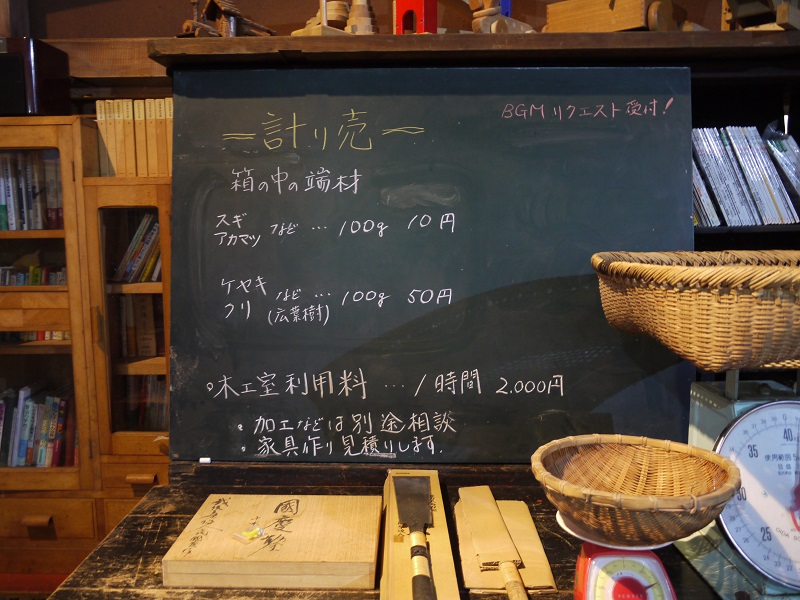 計り売
BGMリクエスト受付!
箱の中の端材
スギ
アカマツ など … 100g 10円
ケヤキ
クリ など … 100g 50円
(広葉樹)
木工室利用料 … 1時間 2.000円
加工などは別途相談
家具作り見積りします.
40
35
30
25
0
使用範囲